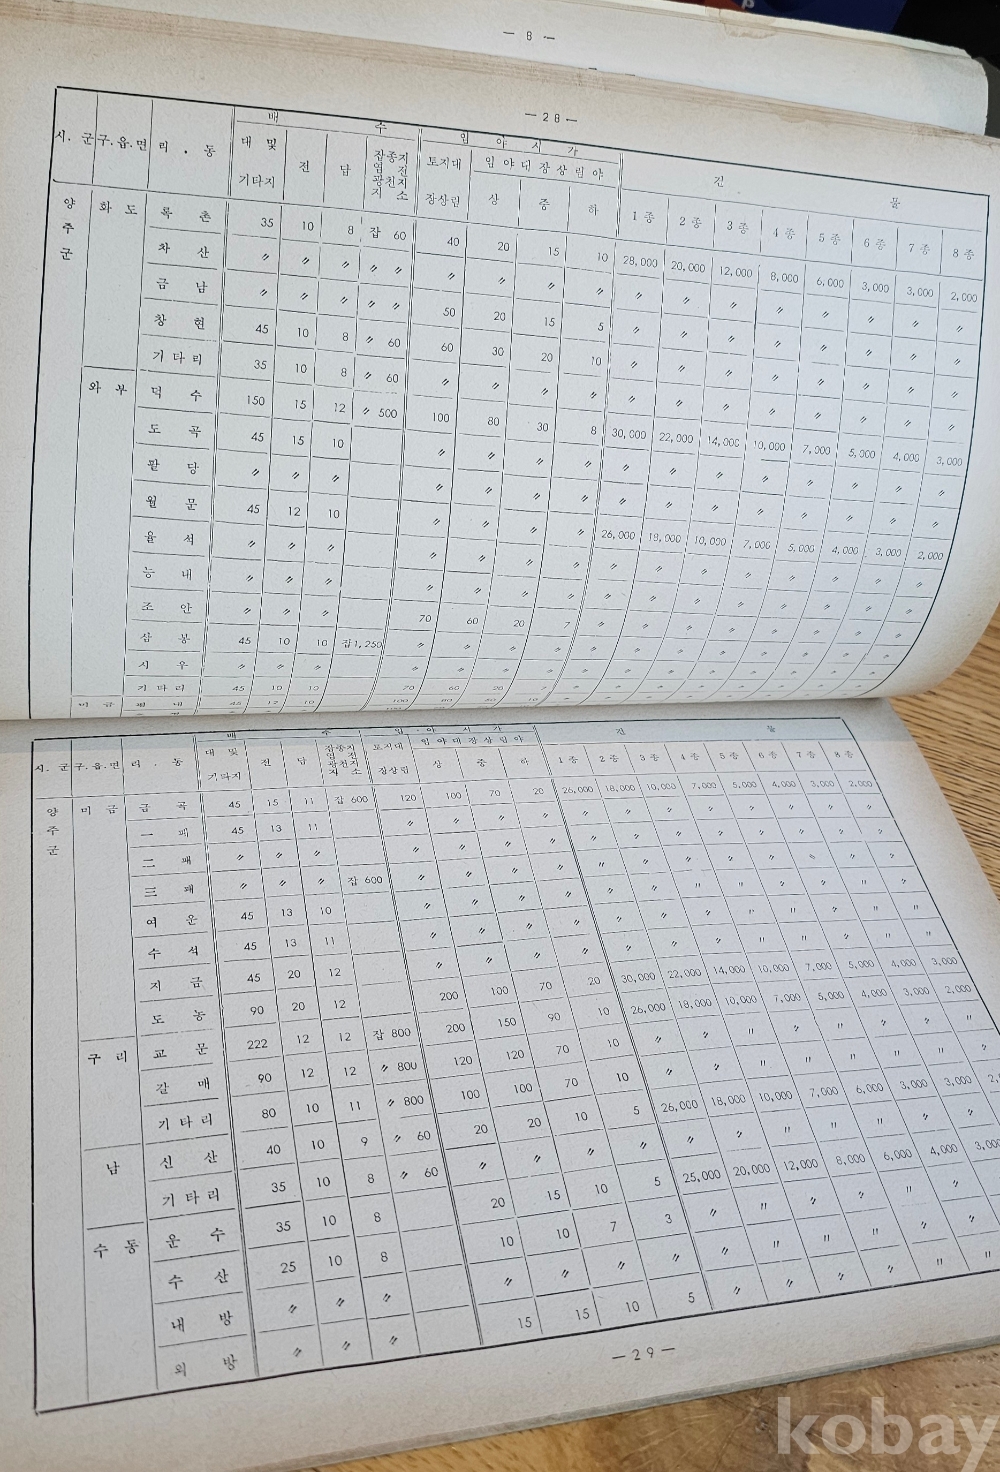 — 8 —
— 28 —
시. 군 구.읍.면 리 . 동 배 수 임 야 시 가 건 물
대 및 기타지 전 답 잡종지 염 전 광천지 지 소 토지대 장상림 임 야 대 장 상 림 야 상 중 하 1 종 2 종 3 종 4 종 5 종 6 종 7 종 8 종
양주군 화 도 록 촌 35 10 8 잡 60 40 20 15 10 28,000 20,000 12,000 8,000 6,000 3,000 3,000 2,000
차 산 〃 〃 〃 〃 〃 〃 〃 〃 〃 〃 〃 〃 〃 〃 〃 〃 〃
금 남 〃 〃 〃 〃 〃 50 20 15 5 〃 〃 〃 〃 〃 〃 〃 〃
창 현 45 10 8 〃 60 60 30 20 10 〃 〃 〃 〃 〃 〃 〃 〃
기 타 리 35 10 8 〃 60 〃 〃 〃 〃 〃 〃 〃 〃 〃 〃 〃 〃
와 부 덕 수 150 15 12 〃 500 100 80 30 8 30,000 22,000 14,000 10,000 7,000 5,000 4,000 3,000
도 곡 45 15 10 〃 〃 〃 〃 〃 〃 〃 〃 〃 〃 〃 〃
팔 당 〃 〃 〃 〃 〃 〃 〃 〃 〃 〃 〃 〃 〃 〃 〃
월 문 45 12 10 〃 〃 〃 〃 26,000 18,000 10,000 7,000 5,000 4,000 3,000 2,000
율 석 〃 〃 〃 〃 〃 〃 〃 〃 〃 〃 〃 〃 〃 〃 〃
능 내 〃 〃 〃 〃 〃 〃 〃 〃 〃 〃 〃 〃 〃 〃 〃
조 안 〃 〃 〃 70 60 20 7 〃 〃 〃 〃 〃 〃 〃 〃
삼 봉 45 10 10 잡1,250 〃 〃 〃 〃 〃 〃 〃 〃 〃 〃 〃 〃
시 우 〃 〃 〃 〃 〃 〃 〃 〃 〃 〃 〃 〃 〃 〃 〃
기 타 리 45 10 10 70 60 20 7 〃 〃 〃 〃 〃 〃 〃 〃
미 금 평 내 45 12 10 100 80 50 10
시. 군 구.읍.면 리 . 동 배 수 임 야 시 가 건 물
대 및 기타지 전 답 잡종지 염 전 광천지 지 소 토지대 장상림 임 야 대 장 상 림 야 상 중 하 1 종 2 종 3 종 4 종 5 종 6 종 7 종 8 종
양주군 미 금 금 곡 45 15 11 잡 600 120 100 70 20 26,000 18,000 10,000 7,000 5,000 4,000 3,000 2,000
一 패 45 13 11 〃 〃 〃 〃 〃 〃 〃 〃 〃 〃 〃 〃
二 패 〃 〃 〃 〃 〃 〃 〃 〃 〃 〃 〃 〃 〃 〃 〃
三 패 〃 〃 〃 잡 600 〃 〃 〃 〃 〃 〃 〃 〃 〃 〃 〃 〃
여 운 45 13 10 〃 〃 〃 〃 〃 〃 〃 〃 〃 〃 〃 〃
수 석 45 13 11 〃 〃 〃 〃 〃 〃 〃 〃 〃 〃 〃 〃
지 금 45 20 12 〃 〃 〃 〃 〃 〃 〃 〃 〃 〃 〃 〃
도 농 90 20 12 200 100 70 20 30,000 22,000 14,000 10,000 7,000 5,000 4,000 3,000
구 리 교 문 222 12 12 잡 800 200 150 90 10 26,000 18,000 10,000 7,000 5,000 4,000 3,000 2,000
갈 매 90 12 12 〃 800 120 120 70 10 〃 〃 〃 〃 〃 〃 〃 〃
기 타 리 80 10 11 〃 800 100 100 70 10 〃 〃 〃 〃 〃 〃 〃 〃
남 신 산 40 10 9 〃 60 20 20 10 5 26,000 18,000 10,000 7,000 6,000 3,000 3,000
기 타 리 35 10 8 〃 60 〃 〃 〃 〃 〃 〃 〃 〃 〃 〃 〃
수 동 운 수 35 10 8 20 15 10 5 25,000 20,000 12,000 8,000 6,000 4,000
수 산 25 10 8 10 10 7 3 〃 〃 〃 〃 〃 〃 〃
내 방 〃 〃 〃 〃 〃 〃 〃 〃 〃 〃 〃 〃 〃 〃
외 방 〃 〃 〃 15 15 10 5 〃 〃 〃 〃 〃 〃
— 29 —
kobay